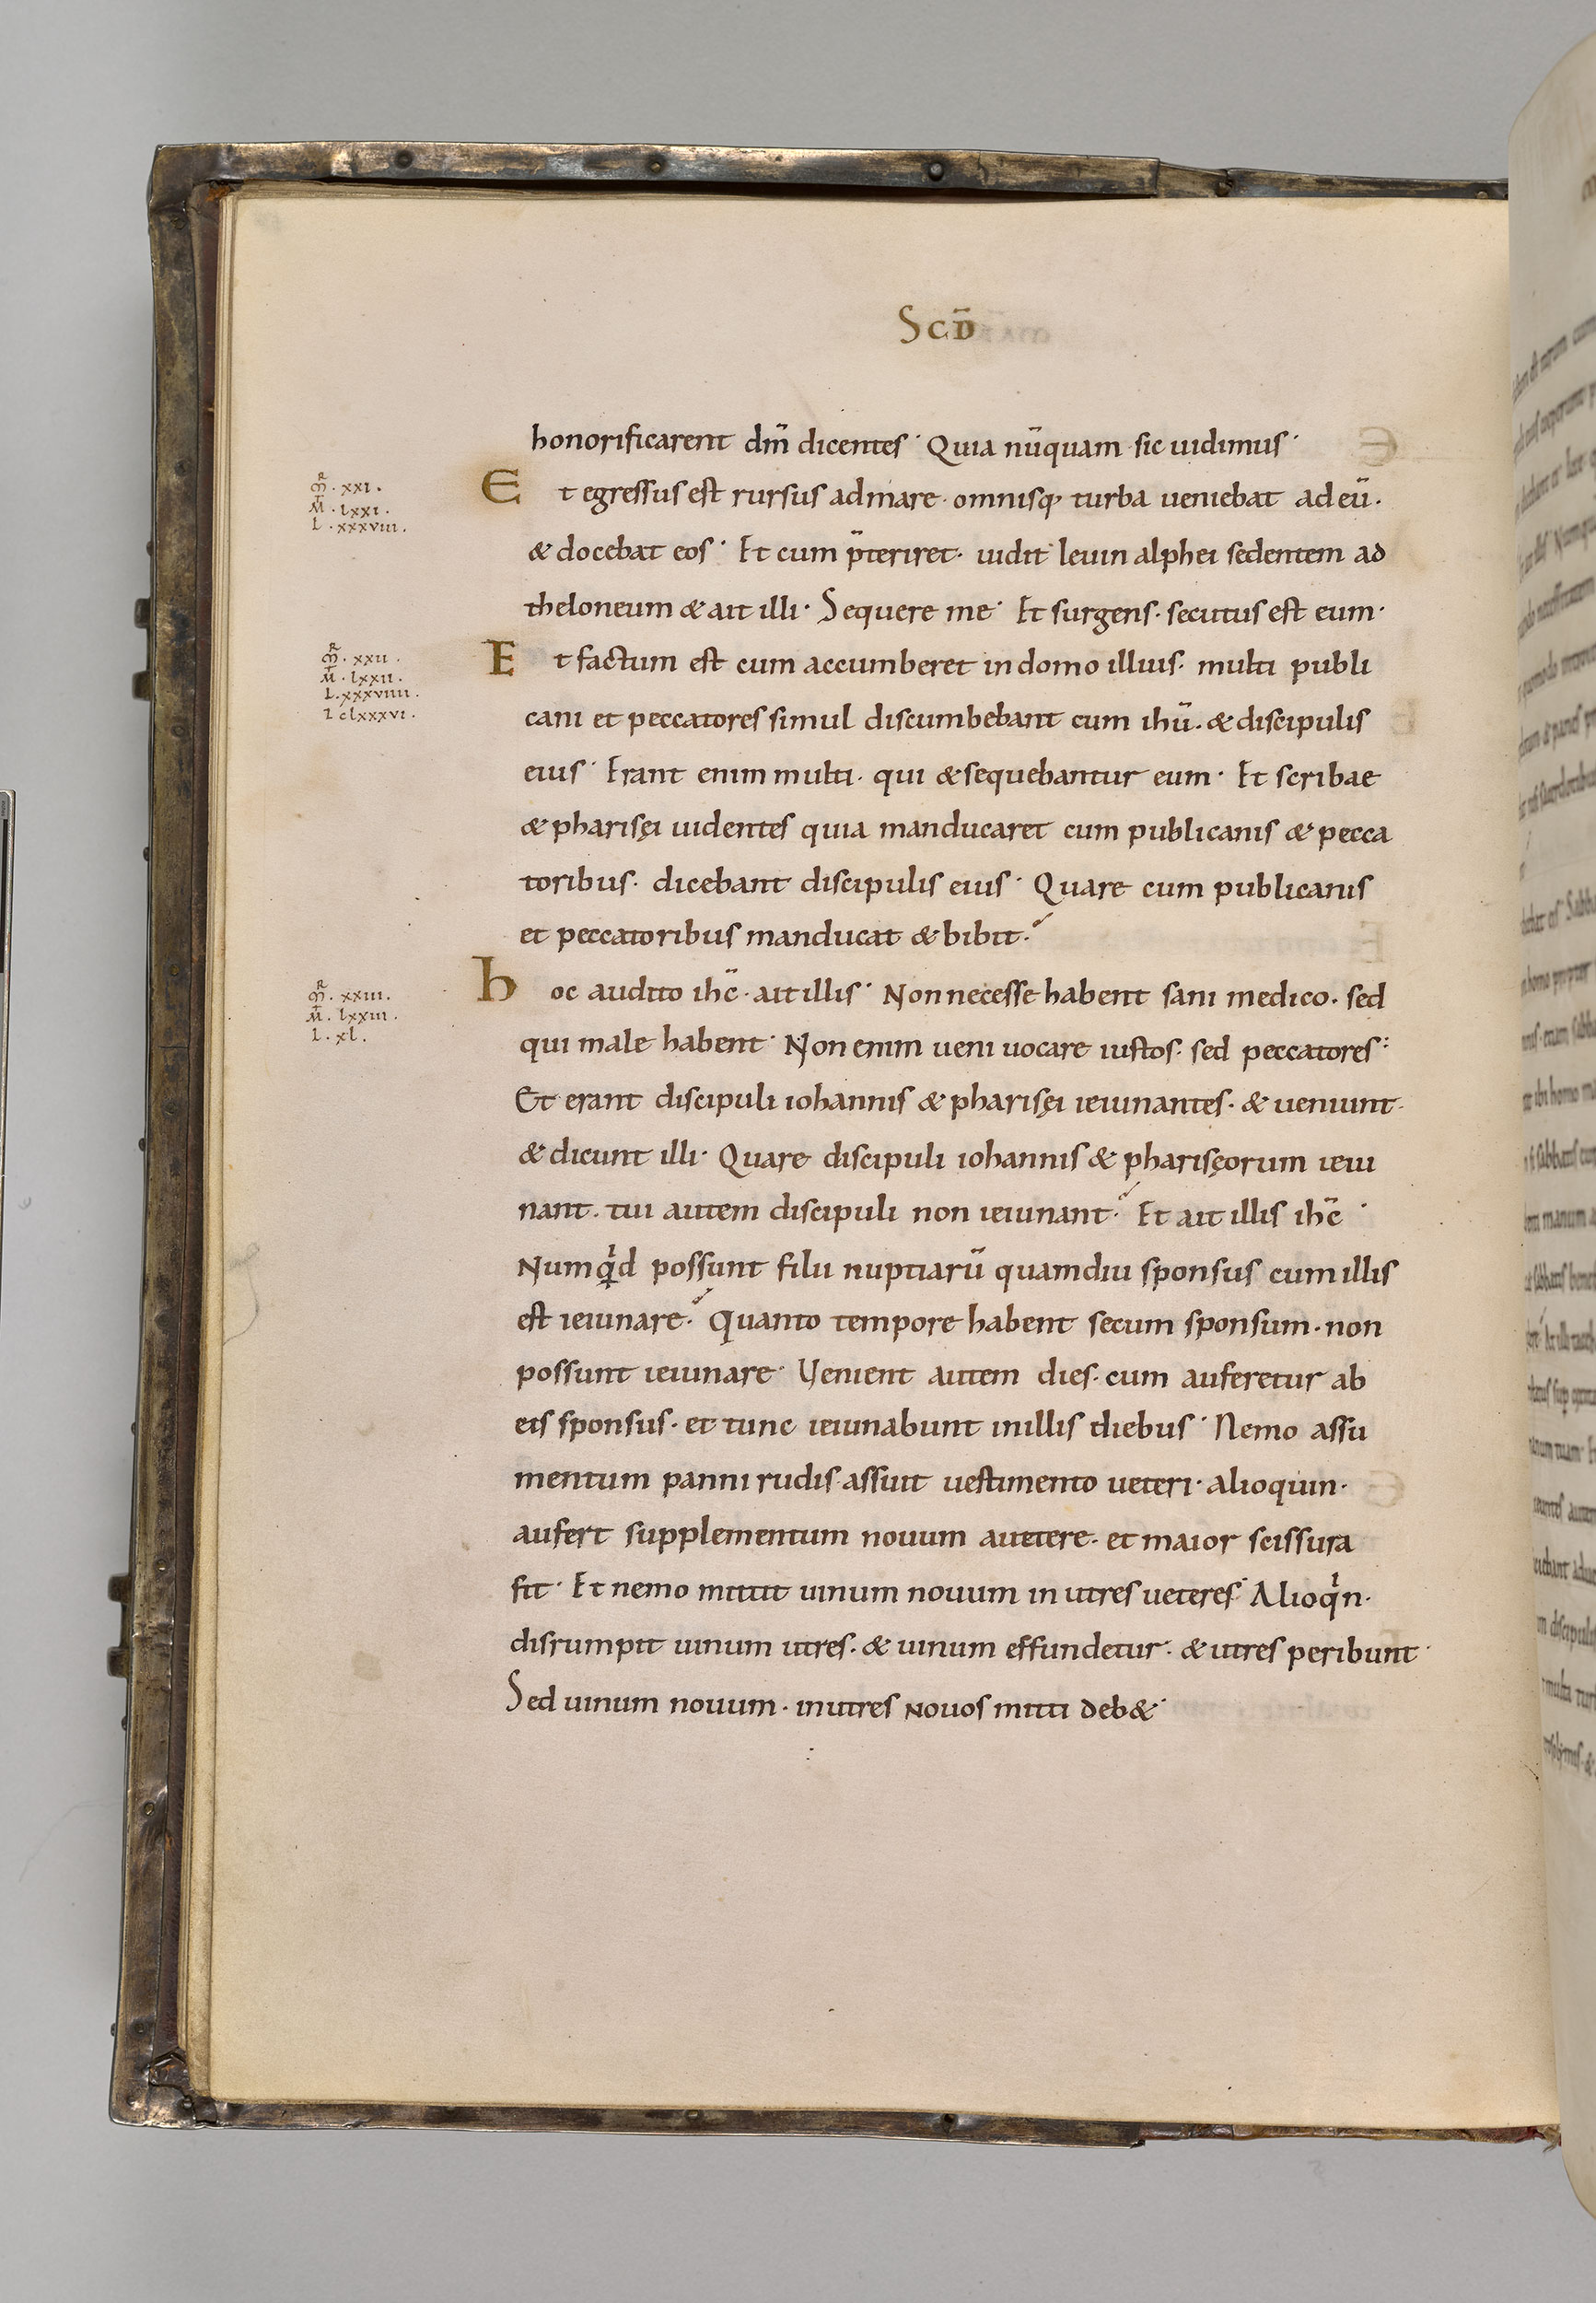 Scd̄
honorificarent dm̄ dicentes· Quia nūquam sic uidimus·
Et egressus est rursus admare· omnisq; turba ueniebat adeū·
mr̄· xxi·
m̄· lxxi·
l· xxxviii·
& docebat eos· Et cum p̄teriret· uidit leuin alphei sedentem ad
theloneum & ait illi· Sequere me· Et surgens· secutus est eum·
Et factum est cum accumberet indomo illius· multi publi
mr̄· xxii·
m̄· lxxii·
l·xxxviiii·
I clxxxvi·
cani et peccatores simul discumbebant cum ihū· & discipulis
eius· Erant enim multi· qui & sequebantur eum· Et scribae
& pharisęi uidentes quia manducaret cum publicanis & pecca
toribus· dicebant discipulis eius· Quare cum publicanis
et peccatoribus manducat & bibit·
hoc audito ihc̄· ait illis· Non necesse habent sani medico· sed
mr̄· xxiii·
m̄· lxxiii·
l· xl·
qui male habent· Non enim ueni uocare iustos· sed peccatores·
Et erant discipuli iohannis & pharisęi ieiunantes· & ueniunt·
& dicunt illi· Quare discipuli iohannis & pharisęorum ieiu
nant· tui autem discipuli non ieiunant· Et ait illis ihc̄·
Numqid possunt filii nuptiarū quamdiu sponsus cum illis
est ieiunare· Quanto tempore habent secum sponsum· non
possunt ieiunare· Uenient autem dies· cum auferetur ab
eis sponsus· et tunc ieiunabunt inillis diebus· Nemo assu
mentum panni rudis assuit uestimento ueteri· alioquin·
aufert supplementum nouum auetere· et maior scissura
fit· Et nemo mittit uinum nouum in utres ueteres· Alioqin·
disrumpit uinum utres· & uinum effundetur· & utres peribunt·
Sed uinum nouum· inutres nouos mitti deb&·